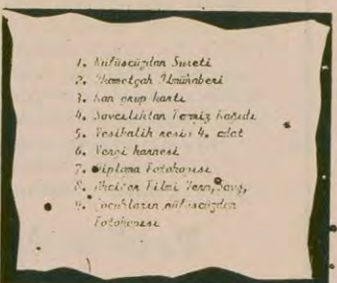 1. Nüfuscüzdan Sureti
2. İkametgah İlmühaberi
3. Kan grup kartı
4. Savcılıktan Temiz Kağıdı
5. Vesikalık resim 4. adet
6. Vergi karnesi
7. Diploma Fotokopisi
8. Akciğer Filmi
9. Çocukların nüfuscüzdan
Fotokopisi